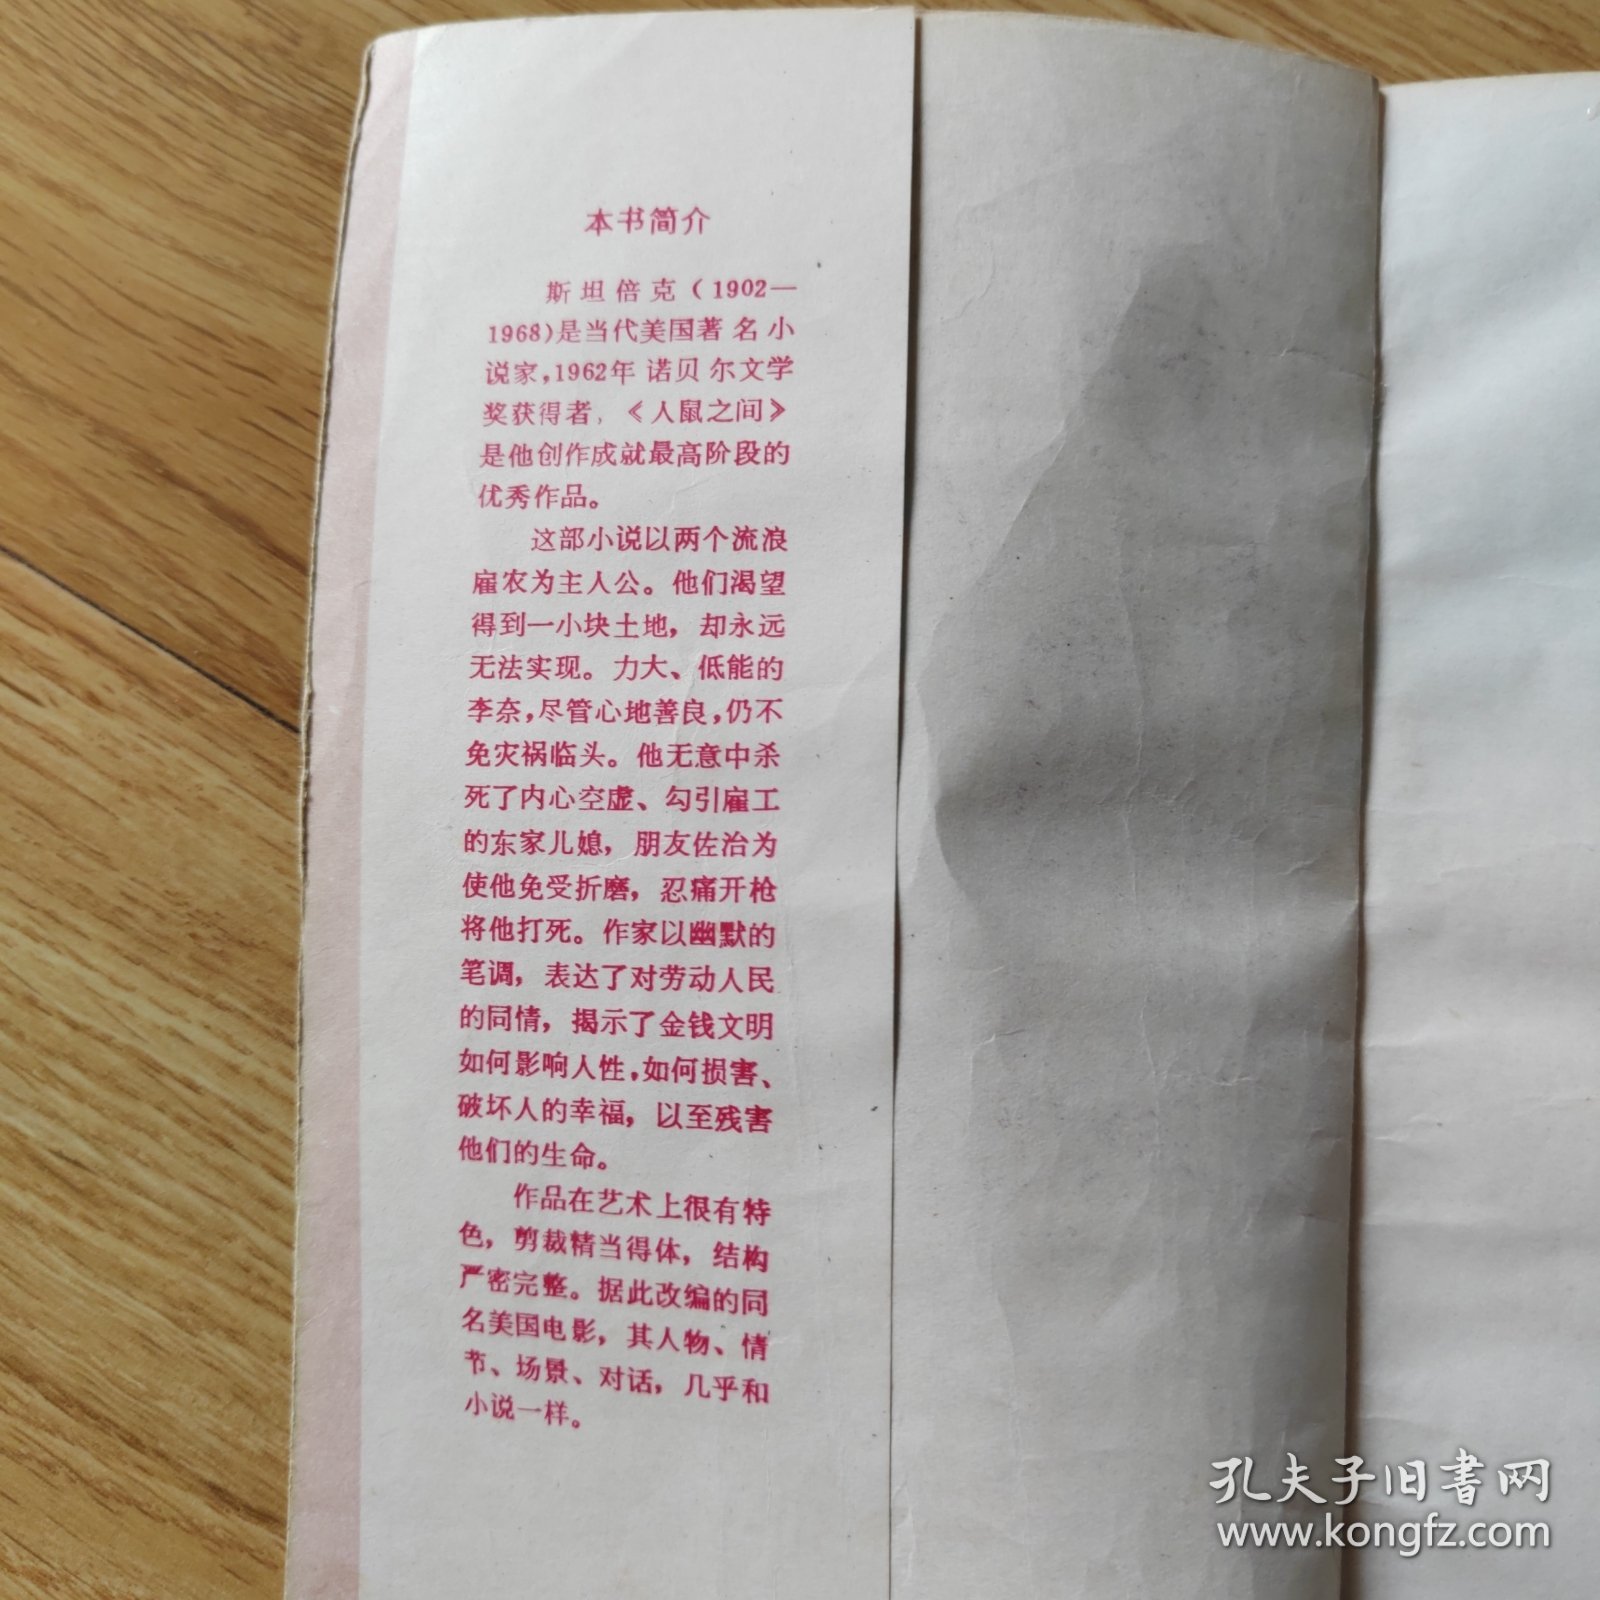 本书简介
斯坦倍克（1902—
1968)是当代美国著名小
说家,1962年诺贝尔文学
奖获得者，《人鼠之间》
是他创作成就最高阶段的
优秀作品。
这部小说以两个流浪
雇农为主人公。他们渴望
得到一小块土地，却永远
无法实现。力大、低能的
李奈,尽管心地善良,仍不
免灾祸临头。他无意中杀
死了内心空虚、勾引雇工
的东家儿媳，朋友佐治为
使他免受折磨，忍痛开枪
将他打死。作家以幽默的
笔调，表达了对劳动人民
的同情，揭示了金钱文明
如何影响人性,如何损害、
破坏人的幸福，以至残害
他们的生命。
作品在艺术上很有特
色，剪裁精当得体，结构
严密完整。据此改编的同
名美国电影，其人物、情
节、场景、对话，几乎和
小说一样。
孔夫子旧书网
www.kongfz.com